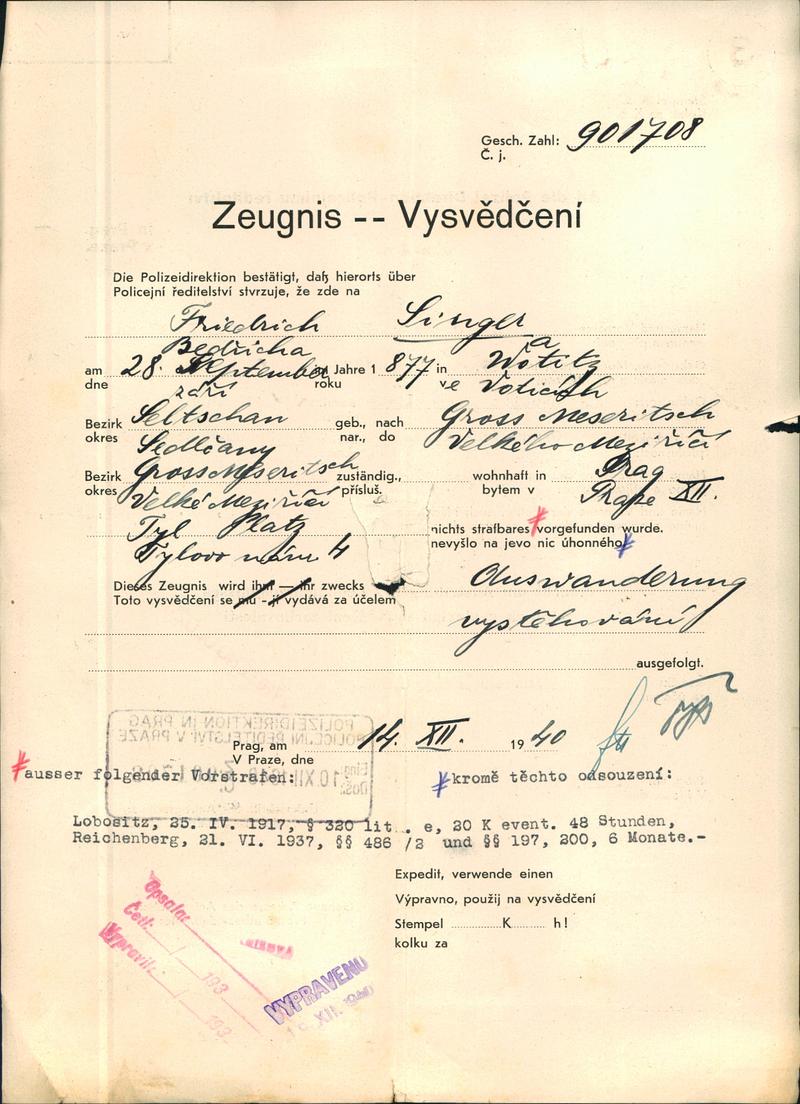 Gesch. Zahl: 901708
Č. j.
Zeugnis -- Vysvědčení
Die Polizeidirektion bestätigt, daß hierorts über
Policejní ředitelství stvrzuje, že zde na
Friedrich Singer
Bedřicha a
am 28. September Jahre 1 877 in Wotitz
dne září roku ve Voticích
Bezirk Seltschan geb., nach Gross Meseritsch
okres Sedlčany nar., do Velkého Meziříčí
Bezirk Gross Meseritsch zuständig., wohnhaft in Prag
okres Velké Meziříčí přísluš. bytem v Praze XII.
Tyl Platz nichts strafbares vorgefunden wurde.
Tylovo nám 4 nevyšlo na jevo nic úhonného
Dieses Zeugnis wird ihm — ihr zwecks Auswanderung
Toto vysvědčení se mu - jí vydává za účelem
vystěhování
ausgefolgt.
POLIZEIDIREKTION IN PRAG
POLICEJNÍ ŘEDITELSTVÍ V PRAZE
Prag, am 14. XII. 1940
V Praze, dne
Eing.
Došlo 10. XII.
ausser folgender Vorstrafen: kromě těchto odsouzení:
Lobositz, 25. IV. 1917, § 320 lit . e, 20 K event. 48 Stunden,
Reichenberg, 21. VI. 1937, §§ 486 /2 und §§ 197, 200, 6 Monate.-
Expedit, verwende einen
Výpravno, použij na vysvědčení
Stempel K h!
kolku za
Opsala:
Četl: 193
Vypravil: 193
VYPRAVENO
XII.